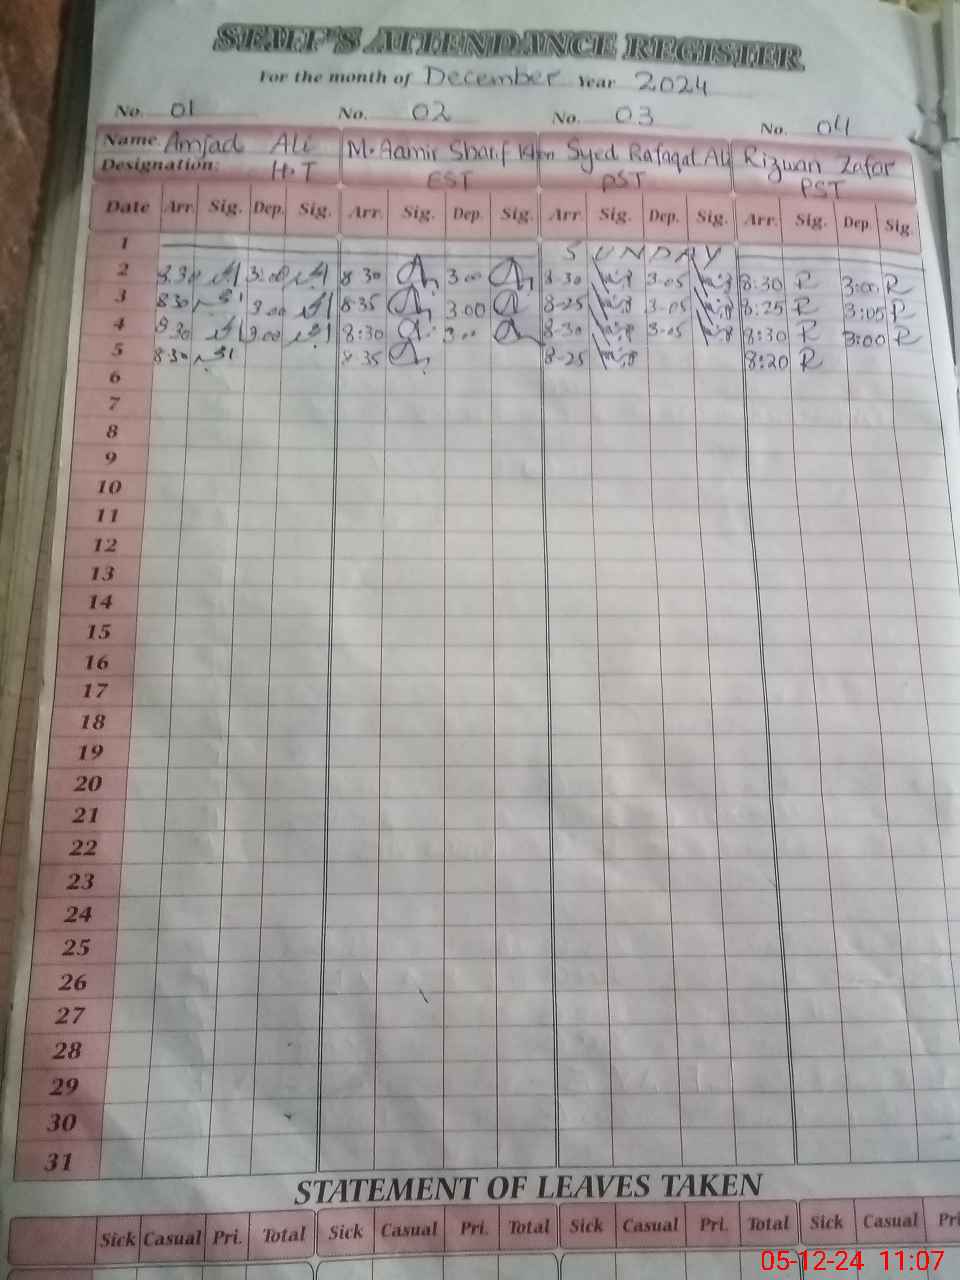 STAFF'S ATTENDANCE REGISTER
For the month of December Year 2024
No. 01 No. 02 No. 03 No. 04
Name Amjad Ali M. Aamir Sharif Khan Syed Rafaqat Ali Rizwan Zafar
Designation: H.T EST PST PST
Date Arr. Sig. Dep. Sig. Arr. Sig. Dep. Sig. Arr. Sig. Dep. Sig. Arr. Sig. Dep. Sig.
1 SUNDAY
2 8.30 3:00 8 30 3.00 8-30 3.05 8:30 R 3:00 R
3 830 3.00 8:35 3.00 8-25 3.05 8:25 R 3:05 R
4 8.30 3.00 8:30 3.00 8-30 3.05 8:30 R 3:00 R
5 830 8.35 8-25 8:20 R
6
7
8
9
10
11
12
13
14
15
16
17
18
19
20
21
22
23
24
25
26
27
28
29
30
31
STATEMENT OF LEAVES TAKEN
Sick Casual Pri. Total Sick Casual Pri. Total Sick Casual Pri. Total Sick Casual Pri
05-12-24 11:07